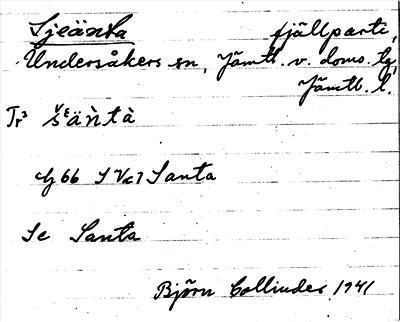 Sjeänta fjällparti,
Undersåkers sn, Jämtl. v. doms. tg,
Jämtl. l.
Tr³ šᵋäǹtà
66 S V Santa
Se Santa
Björn Collinder 1941